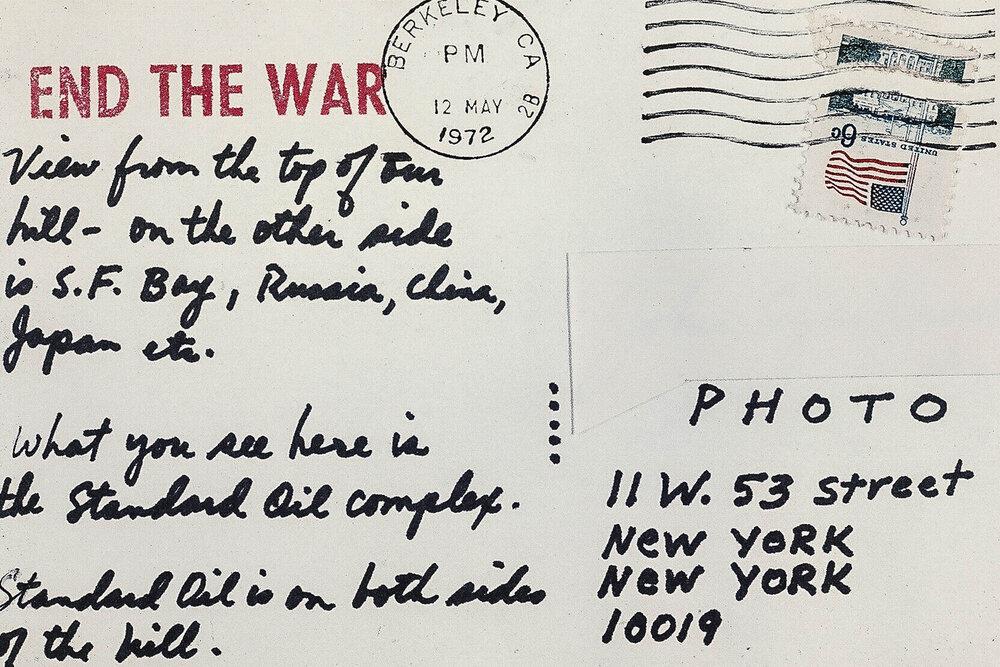 END THE WAR
BERKELEY CA
PM
12 MAY
1972
28
6c
UNITED STATES
View from the top of our
hill- on the other side
is S.F. Bay, Russia, China,
Japan etc.
What you see here is
the Standard Oil complex.
Standard Oil is on both sides
of the hill.
PHOTO
11 W. 53 street
NEW YORK
NEW YORK
10019